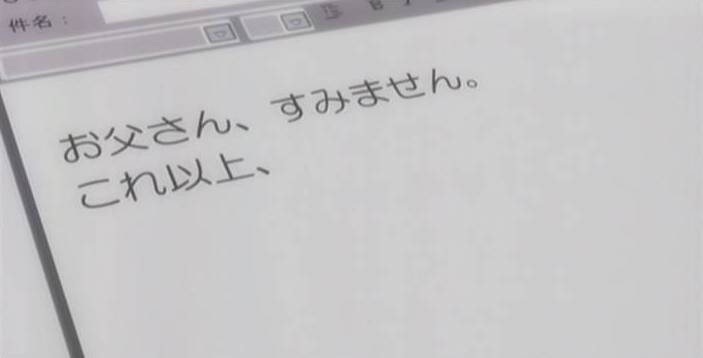 件名：
B
お父さん、すみません。
これ以上、